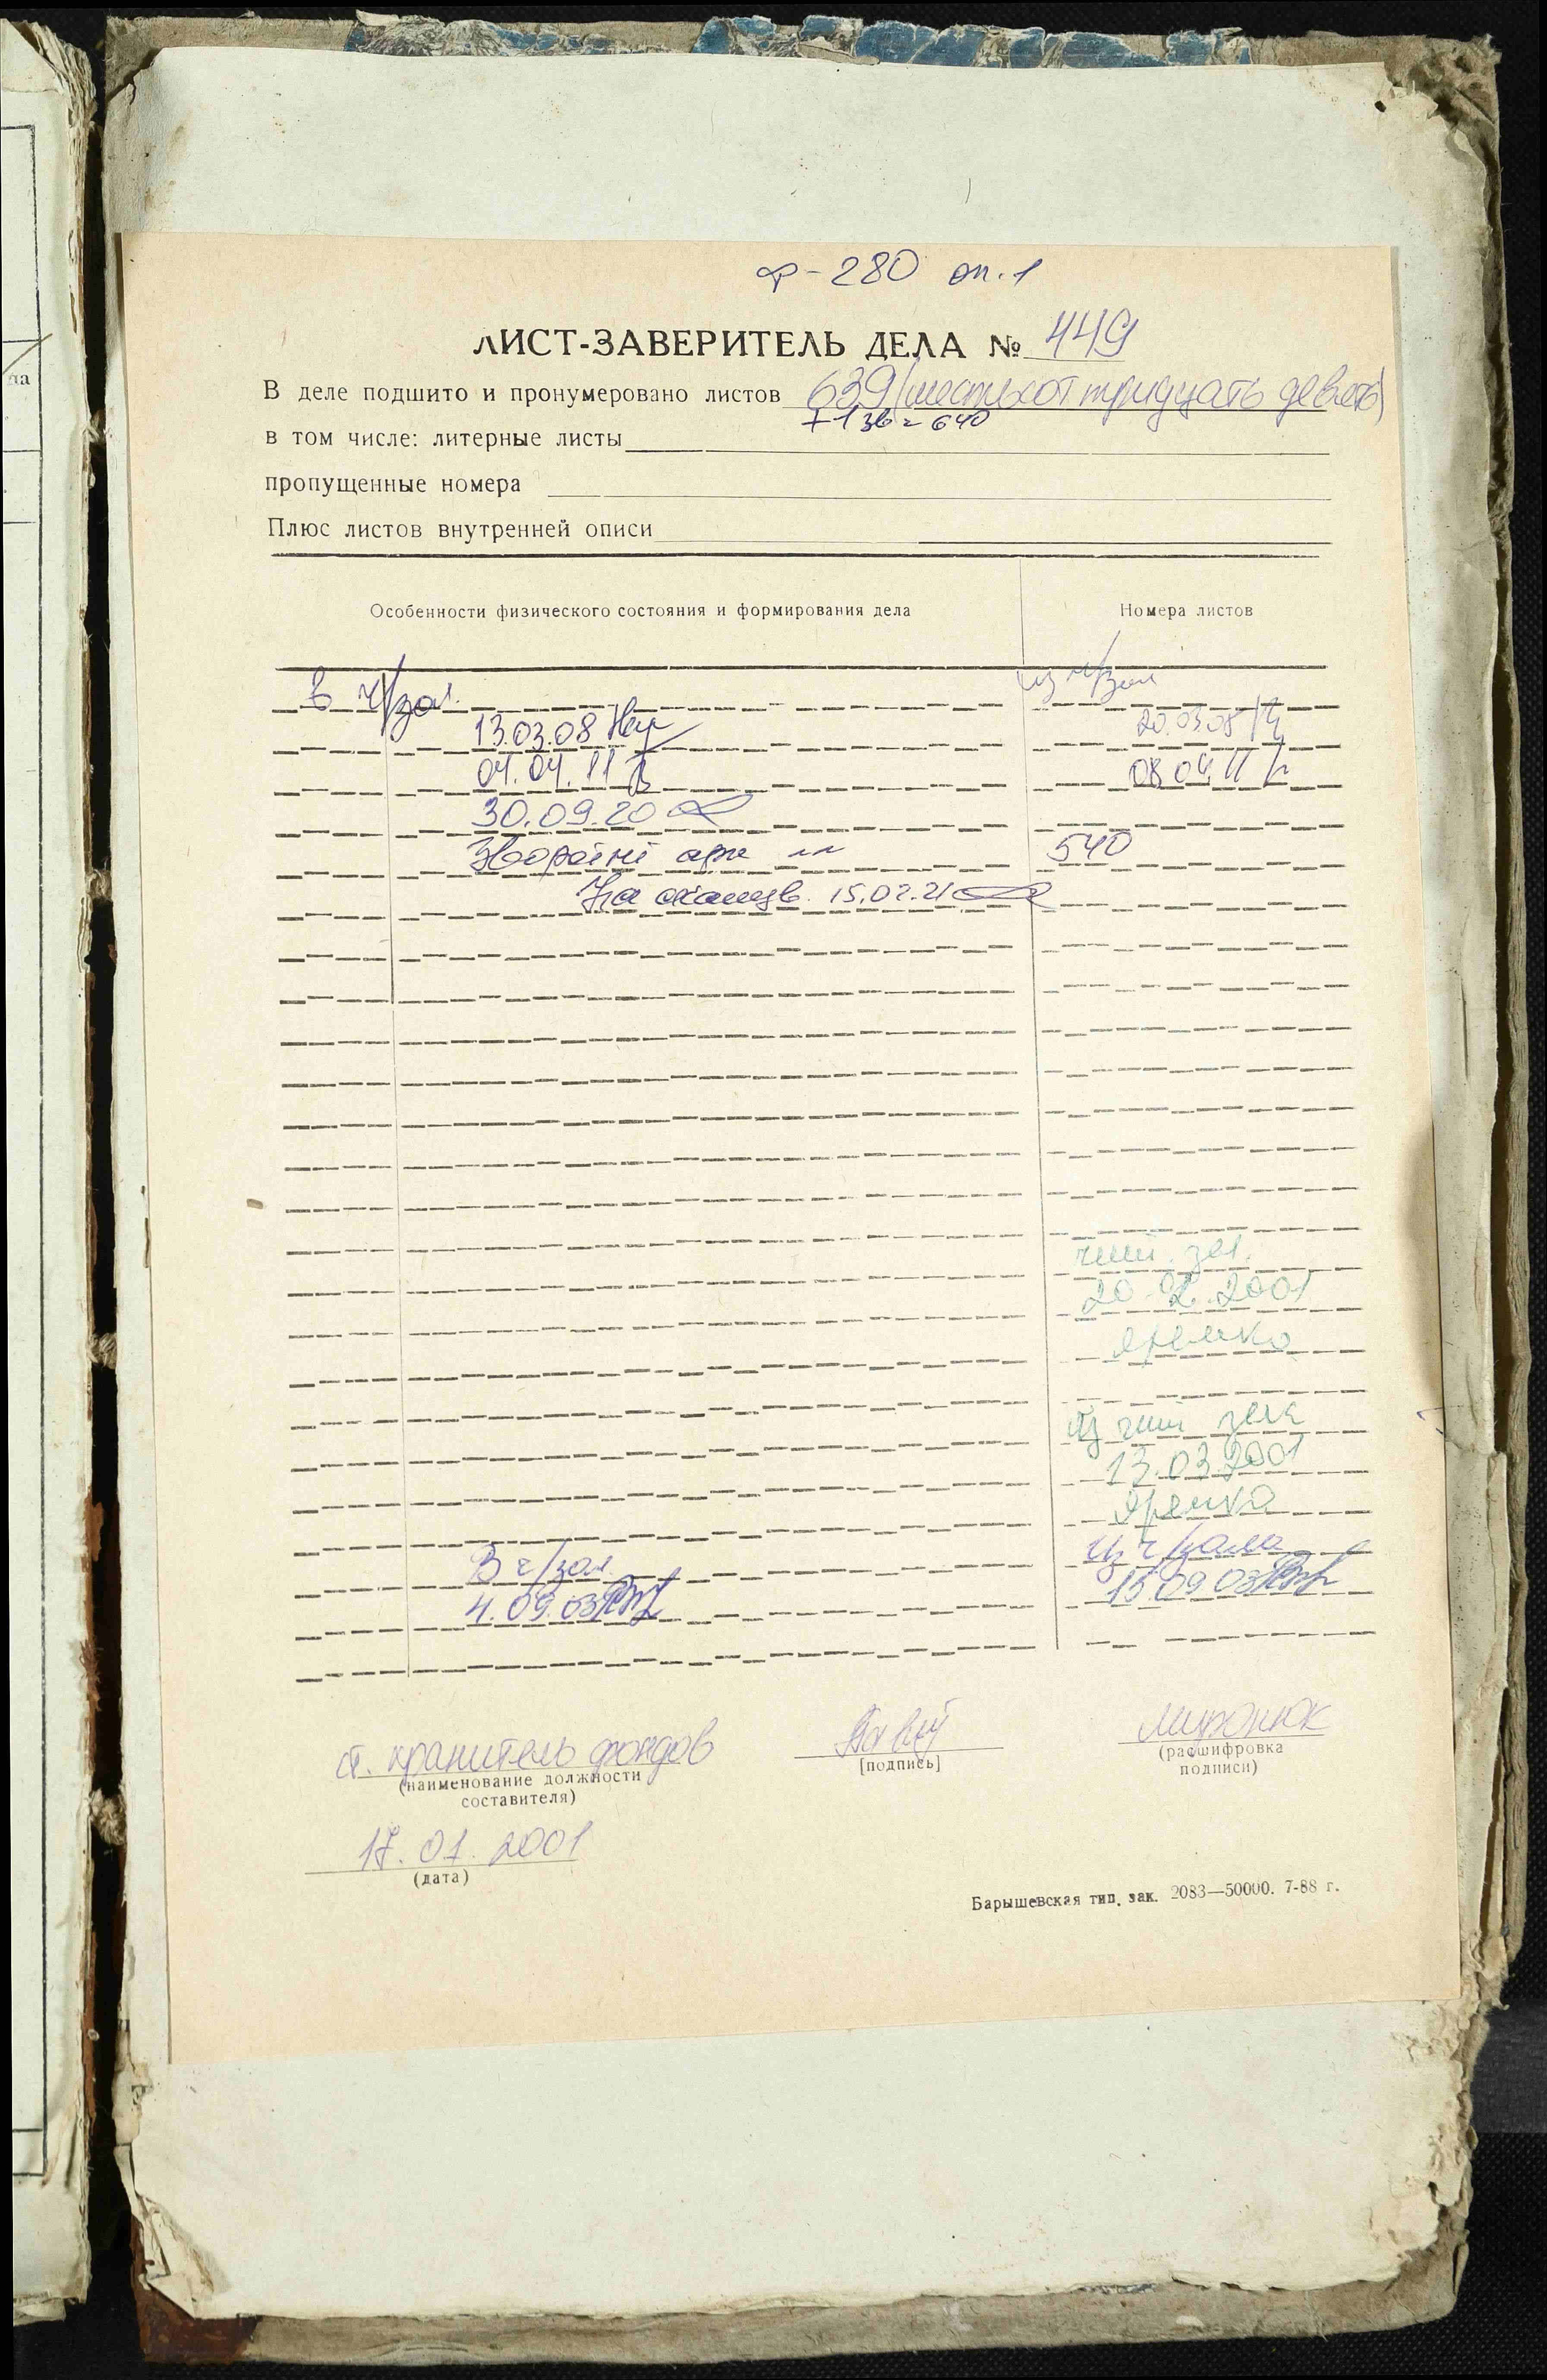 ф-280 оп.1
ЛИСТ-ЗАВЕРИТЕЛЬ ДЕЛА № 449
В деле подшито и пронумеровано листов 639 (шестьсот тридцать девять)
+1 зв = 640
в том числе: литерные листы
пропущенные номера
Плюс листов внутренней описи
Особенности физического состояния и формирования дела
Номера листов
в ч/зал. из ч/зал
13.03.08 20.03.08
04.04.11 08.04.11
30.09.20
Зворотні арк 540
На сканув. 15.02.21
чит. зал.
20. .2001
Яремко
Из чит зала
13.03.2001
Яремко
В ч/зал. Из ч/зала
4.09.03 15.09.03
ст. хранитель фондов Миронюк
(наименование должности
составителя)
[подпись]
(расшифровка
подписи)
17.01.2001
(дата)
Барышевская тип. зак. 2083—50000. 7-88 г.